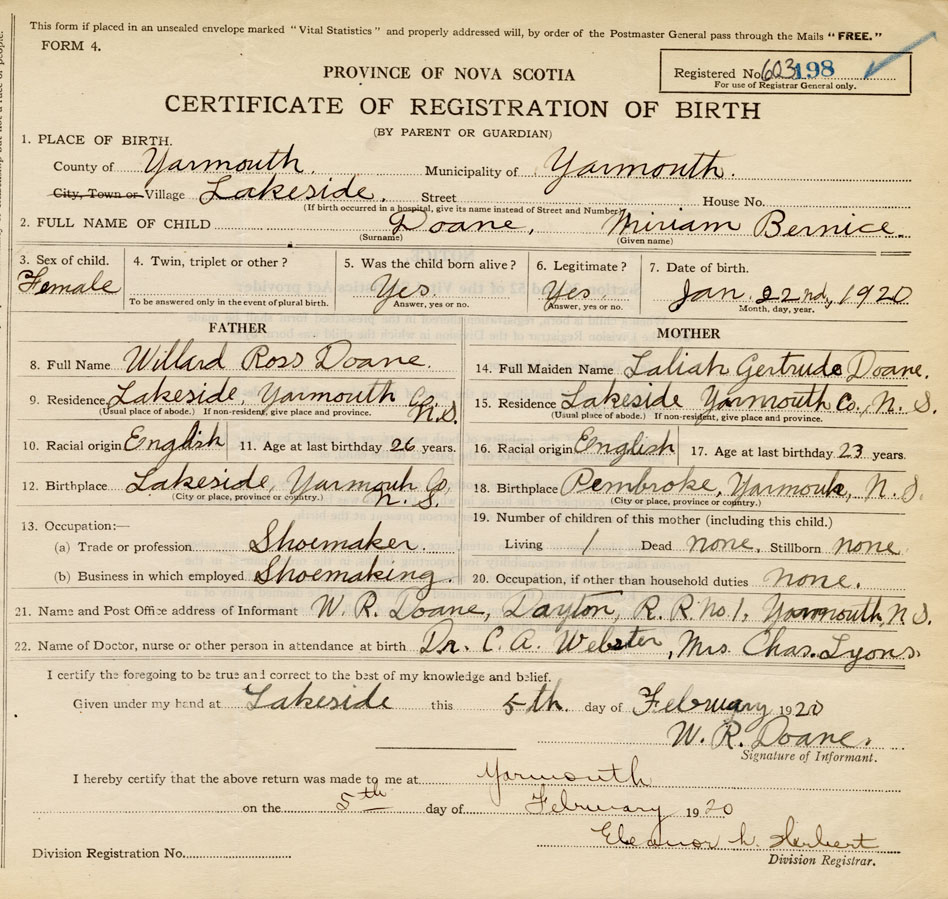 This form if placed in an unsealed envelope marked "Vital Statistics" and properly addressed will, by order of the Postmaster General pass through the Mails "FREE."
FORM 4.
Registered No. 603198
For use of Registrar General only.
PROVINCE OF NOVA SCOTIA
CERTIFICATE OF REGISTRATION OF BIRTH
(BY PARENT OR GUARDIAN)
1. PLACE OF BIRTH.
County of Yarmouth. Municipality of Yarmouth.
City, Town or Village Lakeside. Street House No.
(If birth occurred in a hospital, give its name instead of Street and Number)
2. FULL NAME OF CHILD Doane, Miriam Bernice.
(Surname) (Given name)
3. Sex of child. 4. Twin, triplet or other? 5. Was the child born alive? 6. Legitimate? 7. Date of birth.
Female Yes. Yes. Jan. 22nd, 1920
To be answered only in the event of plural birth. Answer, yes or no. Answer, yes or no. Month, day, year.
FATHER MOTHER
8. Full Name Willard Ross Doane. 14. Full Maiden Name Laliah Gertrude Doane.
9. Residence Lakeside, Yarmouth Co. N.S. 15. Residence Lakeside Yarmouth Co., N. S.
(Usual place of abode.) If non-resident, give place and province. (Usual place of abode.) If non-resident, give place and province.
10. Racial origin English 11. Age at last birthday 26 years. 16. Racial origin English 17. Age at last birthday 23 years.
12. Birthplace Lakeside, Yarmouh Co. N. S. 18. Birthplace Pembroke, Yarmouth, N. S.
(City or place, province or country.) (City or place, province or country.)
13. Occupation:— 19. Number of children of this mother (including this child.)
(a) Trade or profession Shoemaker. Living 1 Dead none. Stillborn none
(b) Business in which employed Shoemaking. 20. Occupation, if other than household duties none.
21. Name and Post Office address of Informant W. R. Doane, Dayton, R. R. No. 1, Yarmouth, N S.
22. Name of Doctor, nurse or other person in attendance at birth Dr. C. A. Webster, Mrs. Chas. Lyons.
I certify the foregoing to be true and correct to the best of my knowledge and belief.
Given under my hand at Lakeside this 5th. day of February 1920
W. R. Doane.
Signature of Informant.
I hereby certify that the above return was made to me at Yarmouth
on the 5th day of February 1920
Eleanor h. Herbert
Division Registration No. Division Registrar.